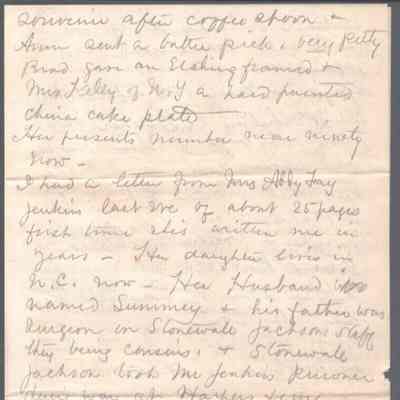 souvenir after coffee spoon &
Anna sent a butter pick, very pretty
Brad gave an Etching framed &
Mrs Kelly of N.Y a hand painted
china cake plate
Her presents number near ninety
now -
I had a letter from Mrs Abby Fay
Jenkins last eve of about 25 pages
first time she's written me in
years - Her daughter lives in
N.C. now - Her Husband is
named Summey & his father was
surgeon in Stonewall Jacksons staff
they being cousins. & Stonewall
Jackson took Mr Jenkins prisoner
way at Harpers Ferry